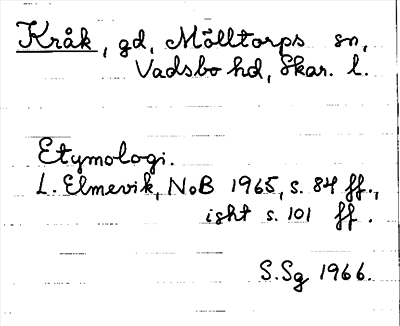 Kråk, gd, Mölltorps sn,
Vadsbo hd, Skar. l.
Etymologi.
L. Elmevik, NoB 1965, s. 84 ff.,
isht s. 101 ff.
S.Sg 1966.